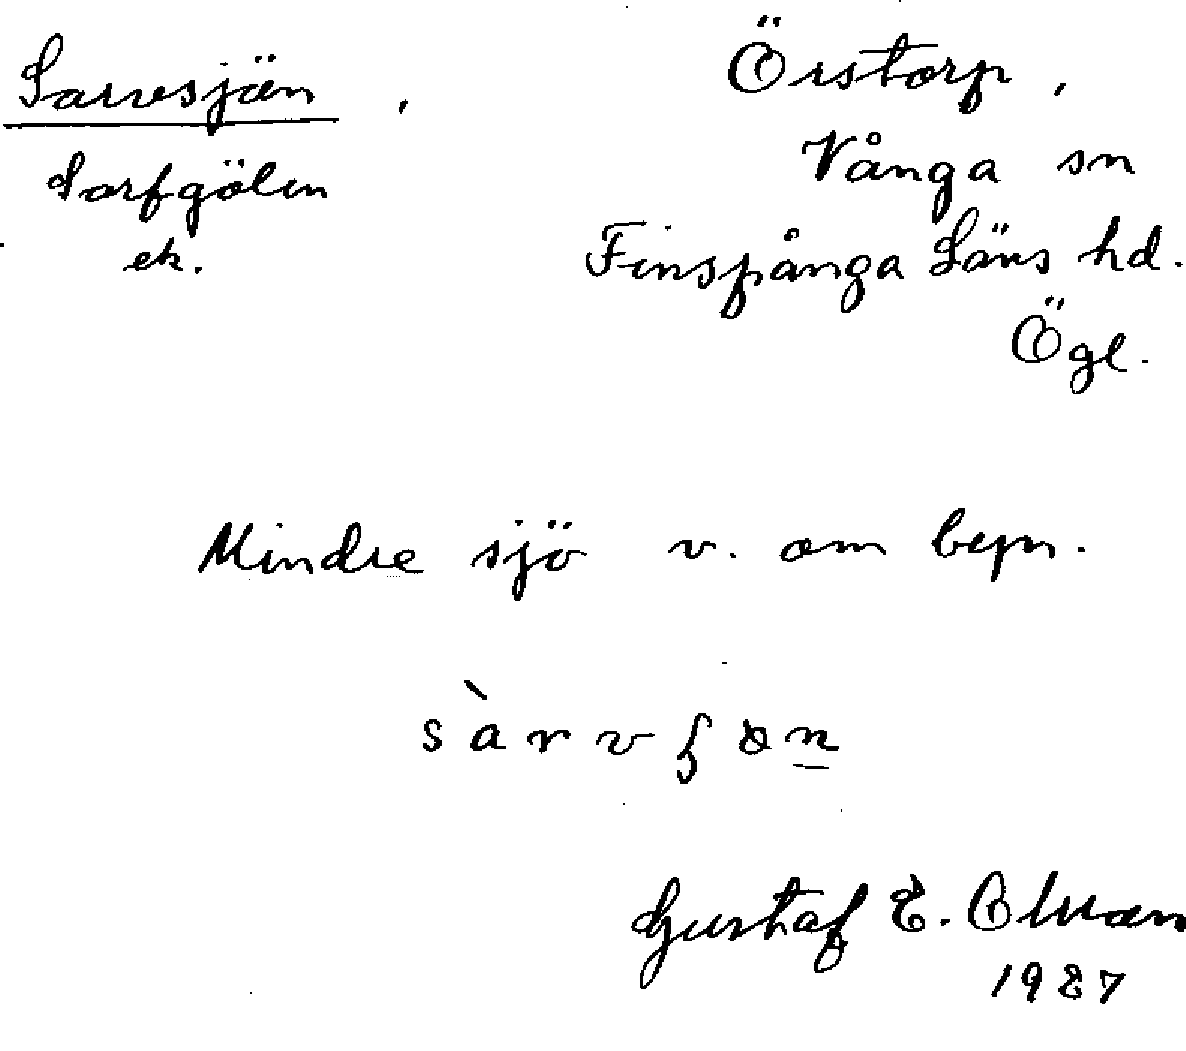 Sarvsjön, Örstorp,
Sarfgölen Vånga sn
ek. Finspånga Läns hd.
Ögl.
Mindre sjö v. om byn.
Gustaf E.
1927